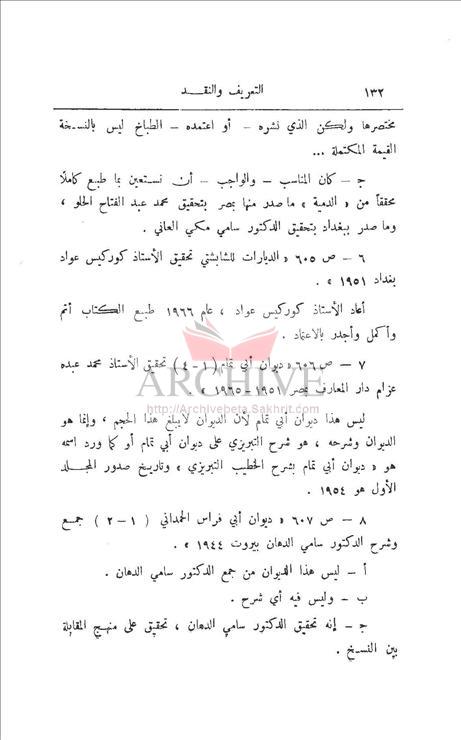 ١٣٢ التعريف والنقـــد
مختصرها ولكن الذي نشره – أو اعتمده – الطباخ ليس بالنسخة
القيمة المكتملة ...
جـ – كان المناسب – والواجب – أن نستعين بما طبع كاملاً
محققاً من « الدمية » ما صدر منها بمصر بتحقيق محمد عبد الفتاح الحلو ،
وما صدر ببغداد بتحقيق الدكتور سامي مكي العاني .
٦ – ص ٦٠٥ « الديارات للشابشتي تحقيق الأستاذ كوركيس عواد
بغداد ١٩٥١ » .
أعاد الأستاذ كوركيس عواد ، عام ١٩٦٦ طبع الكتاب أتم
وأكمل وأجدر بالاعتماد .
٧ – ص ٦٠٦ « ديوان أبي تمام (١ - ٤) تحقيق الأستاذ محمد عبده
عزام دار المعارف بمصر ١٩٥١ - ١٩٦٥ » .
ARCHIVE
http://Archivebeta.Sakhrit.com
ليس هذا ديوان أبي تمام لأن الديوان لايبلغ هذا الحجم ، وإنما هو
الديوان وشرحه ، هو شرح التبريزي على ديوان أبي تمام أو كما ورد اسمه
هو « ديوان أبي تمام بشرح الخطيب التبريزي » وتاريخ صدور المجلد
الأول هو ١٩٥٤ .
٨ – ص ٦٠٧ « ديوان أبي فراس الحمداني ( ١ – ٢ ) جمع
وشرح الدكتور سامي الدهان بيروت ١٩٤٤ » .
أ – ليس هذا الديوان من جمع الدكتور سامي الدهان .
ب – وليس فيه أي شرح .
جـ – إنه تحقيق الدكتور سامي الدهان ، تحقيق على منهج المقابلة
بين النسخ .